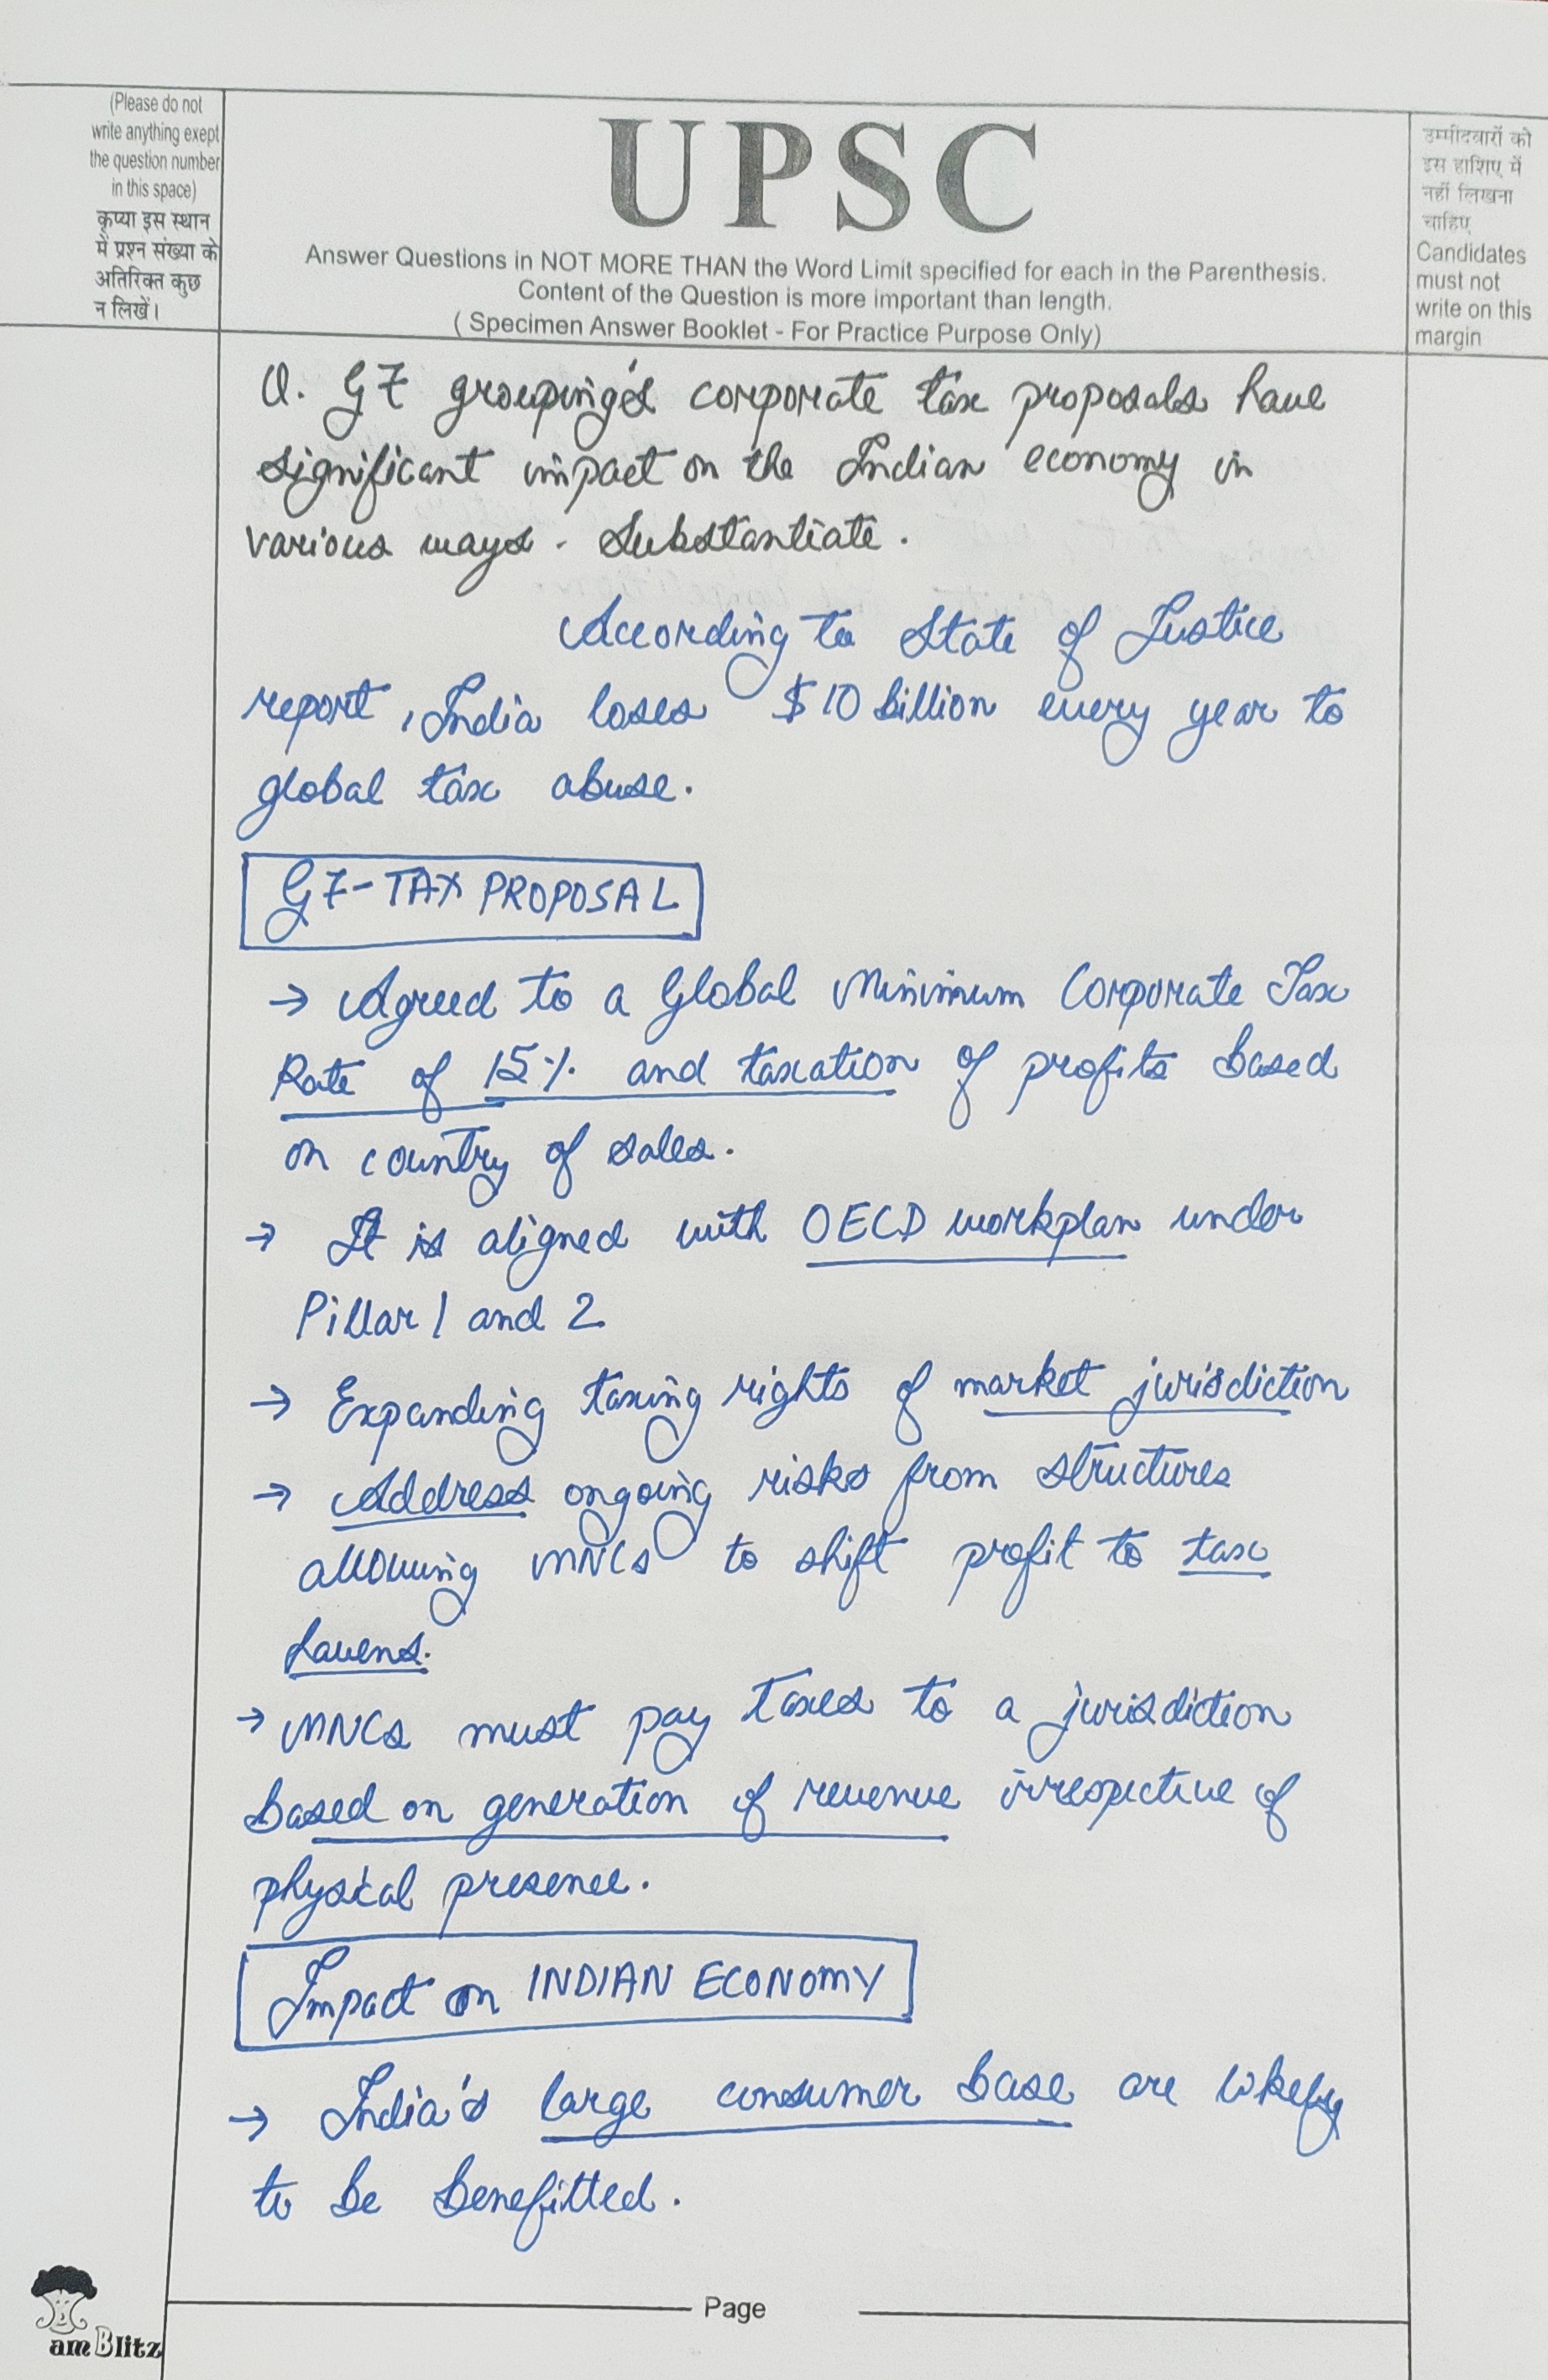 (Please do not
write anything exept
the question number
in this space)
कृप्या इस स्थान
में प्रश्न संख्या के
अतिरिक्त कुछ
न लिखें।
UPSC
Answer Questions in NOT MORE THAN the Word Limit specified for each in the Parenthesis.
Content of the Question is more important than length.
( Specimen Answer Booklet - For Practice Purpose Only)
उम्मीदवारों को
इस हाशिए में
नहीं लिखना
चाहिए
Candidates
must not
write on this
margin
Q. G7 grouping's corporate tax proposals have
significant impact on the Indian economy in
various ways. Substantiate.
According to State of Justice
report, India loses $10 billion every year to
global tax abuse.
G7-TAX PROPOSAL
→ Agreed to a Global Minimum Corporate Tax
Rate of 15% and taxation of profits based
on country of sales.
→ It is aligned with OECD workplan under
Pillar 1 and 2
→ Expanding taxing rights of market jurisdiction
→ Address ongoing risks from structures
allowing MNCs to shift profit to tax
havens.
→ MNCs must pay taxes to a jurisdiction
based on generation of revenue irrespective of
physical presence.
Impact on INDIAN ECONOMY
→ India's large consumer base are likely
to be benefitted.
Page
am Blitz